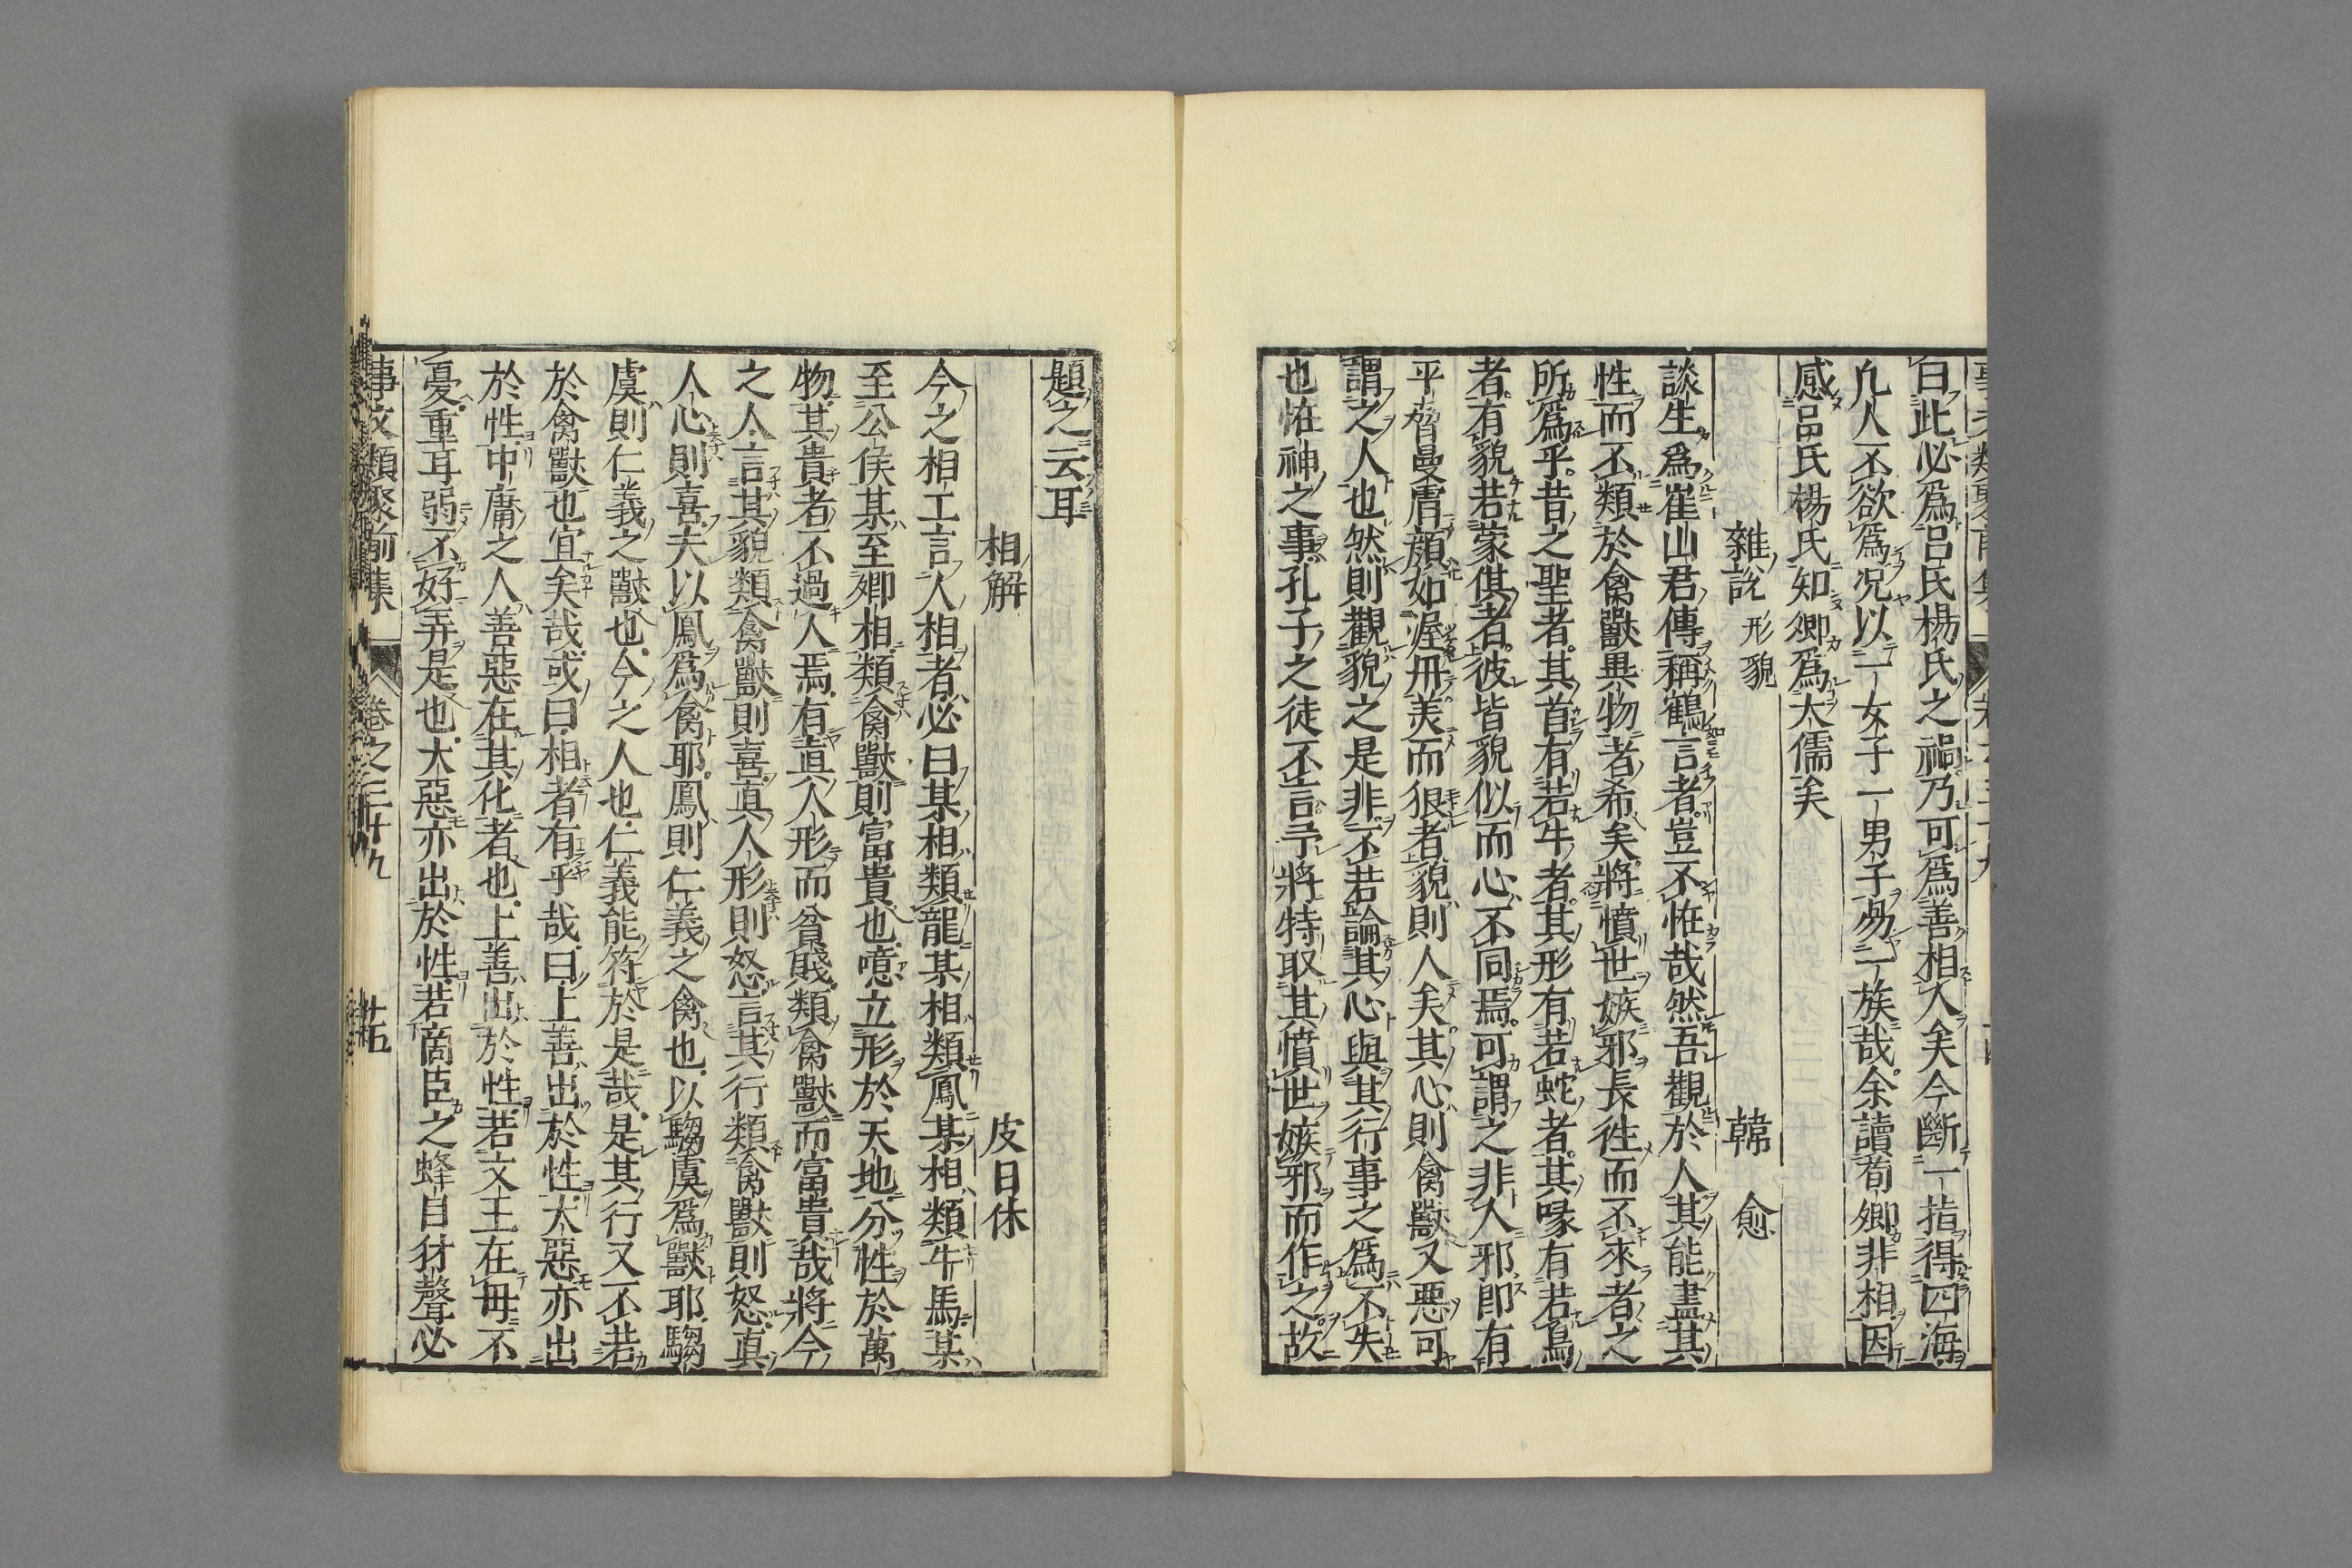 曰此必爲呂氏楊氏之禍乃可爲善相人矣今斷一指得四海
凢人不欲爲况以一女子一男子易一族哉余讀荀卿非相因
感呂氏楊氏知卿爲大儒矣
雜說 形貌 韓愈
談生爲崔山君傳稱鶴言者豈不恠哉然吾觀於人其能盡其
性而不類於禽獸異物者希矣將憤世嫉邪長徃而不來者之
所爲乎昔之聖者其首有若牛者其形有若蛇者其喙有若鳥
者有貌若蒙倛者彼皆貌似而心不同焉可謂之非人邪卽有
平脅曼膚顔如渥丹美而狠者貌則人矣其心則禽獸又悪可
謂之人也然則觀貌之是非不若論其心與其行事之爲不失
也恠神之事孔子之徒不言予將特取其憤世嫉邪而作之故
題之云耳
相解 皮日休
今之相工言人相者必曰某相類龍某相類鳳某相類牛馬某
至公侯某至卿相類禽獸則富貴也噫立形於天地分性於萬
物其貴者不過人焉有眞人形而貧賤類禽獸而富貴哉將今
之人言其貌類禽獸則喜眞人形則怒言其行類禽獸則怒眞
人心則喜夫以鳳爲禽耶鳳則仁義之禽也以騶虞爲獸耶騶
虞則仁義之獸也今之人也仁義能符於是哉是其行又不若
於禽獸也宜矣哉或曰相者有乎哉曰上善出於性大惡亦出
於性中庸之人善惡在其化者也上善出於性若文王在母不
憂重耳弱不好弄是也大惡亦出於性若商臣之蜂目豺聲必
事文類聚前集 卷之三十九 廿五